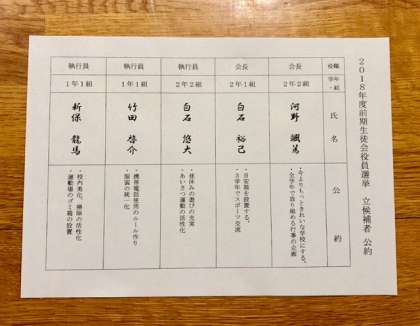 2018年度前期生徒会役員選挙 立候補者 公約
役職
学年・組
氏名
公約
会長
2年2組
河野 颯萬
・今よりもっときれいな学校にする。
・全学年で取り組める行事の企画
会長
2年1組
白石 裕己
・目安箱を設置する。
・3学年でスポーツ交流
執行員
2年2組
白石 悠大
・昼休みの遊びの充実
・あいさつ運動の活性化
執行員
1年1組
竹田 啓介
・携帯電話使用のルール作り
・服装の統一化
執行員
1年1組
新保 龍馬
・校内美化、掃除の活性化
・運動場のゴミ箱の設置